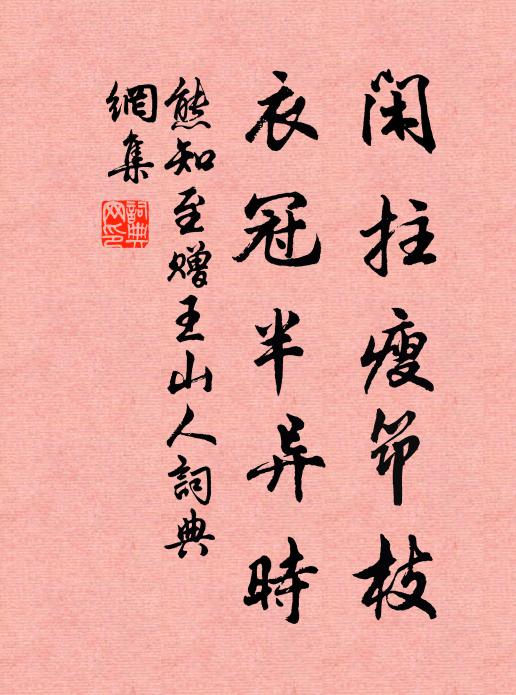 閑拄瘦筇枝
衣冠半异時
熊知至赠王山人詞典
網集
詞典
网印